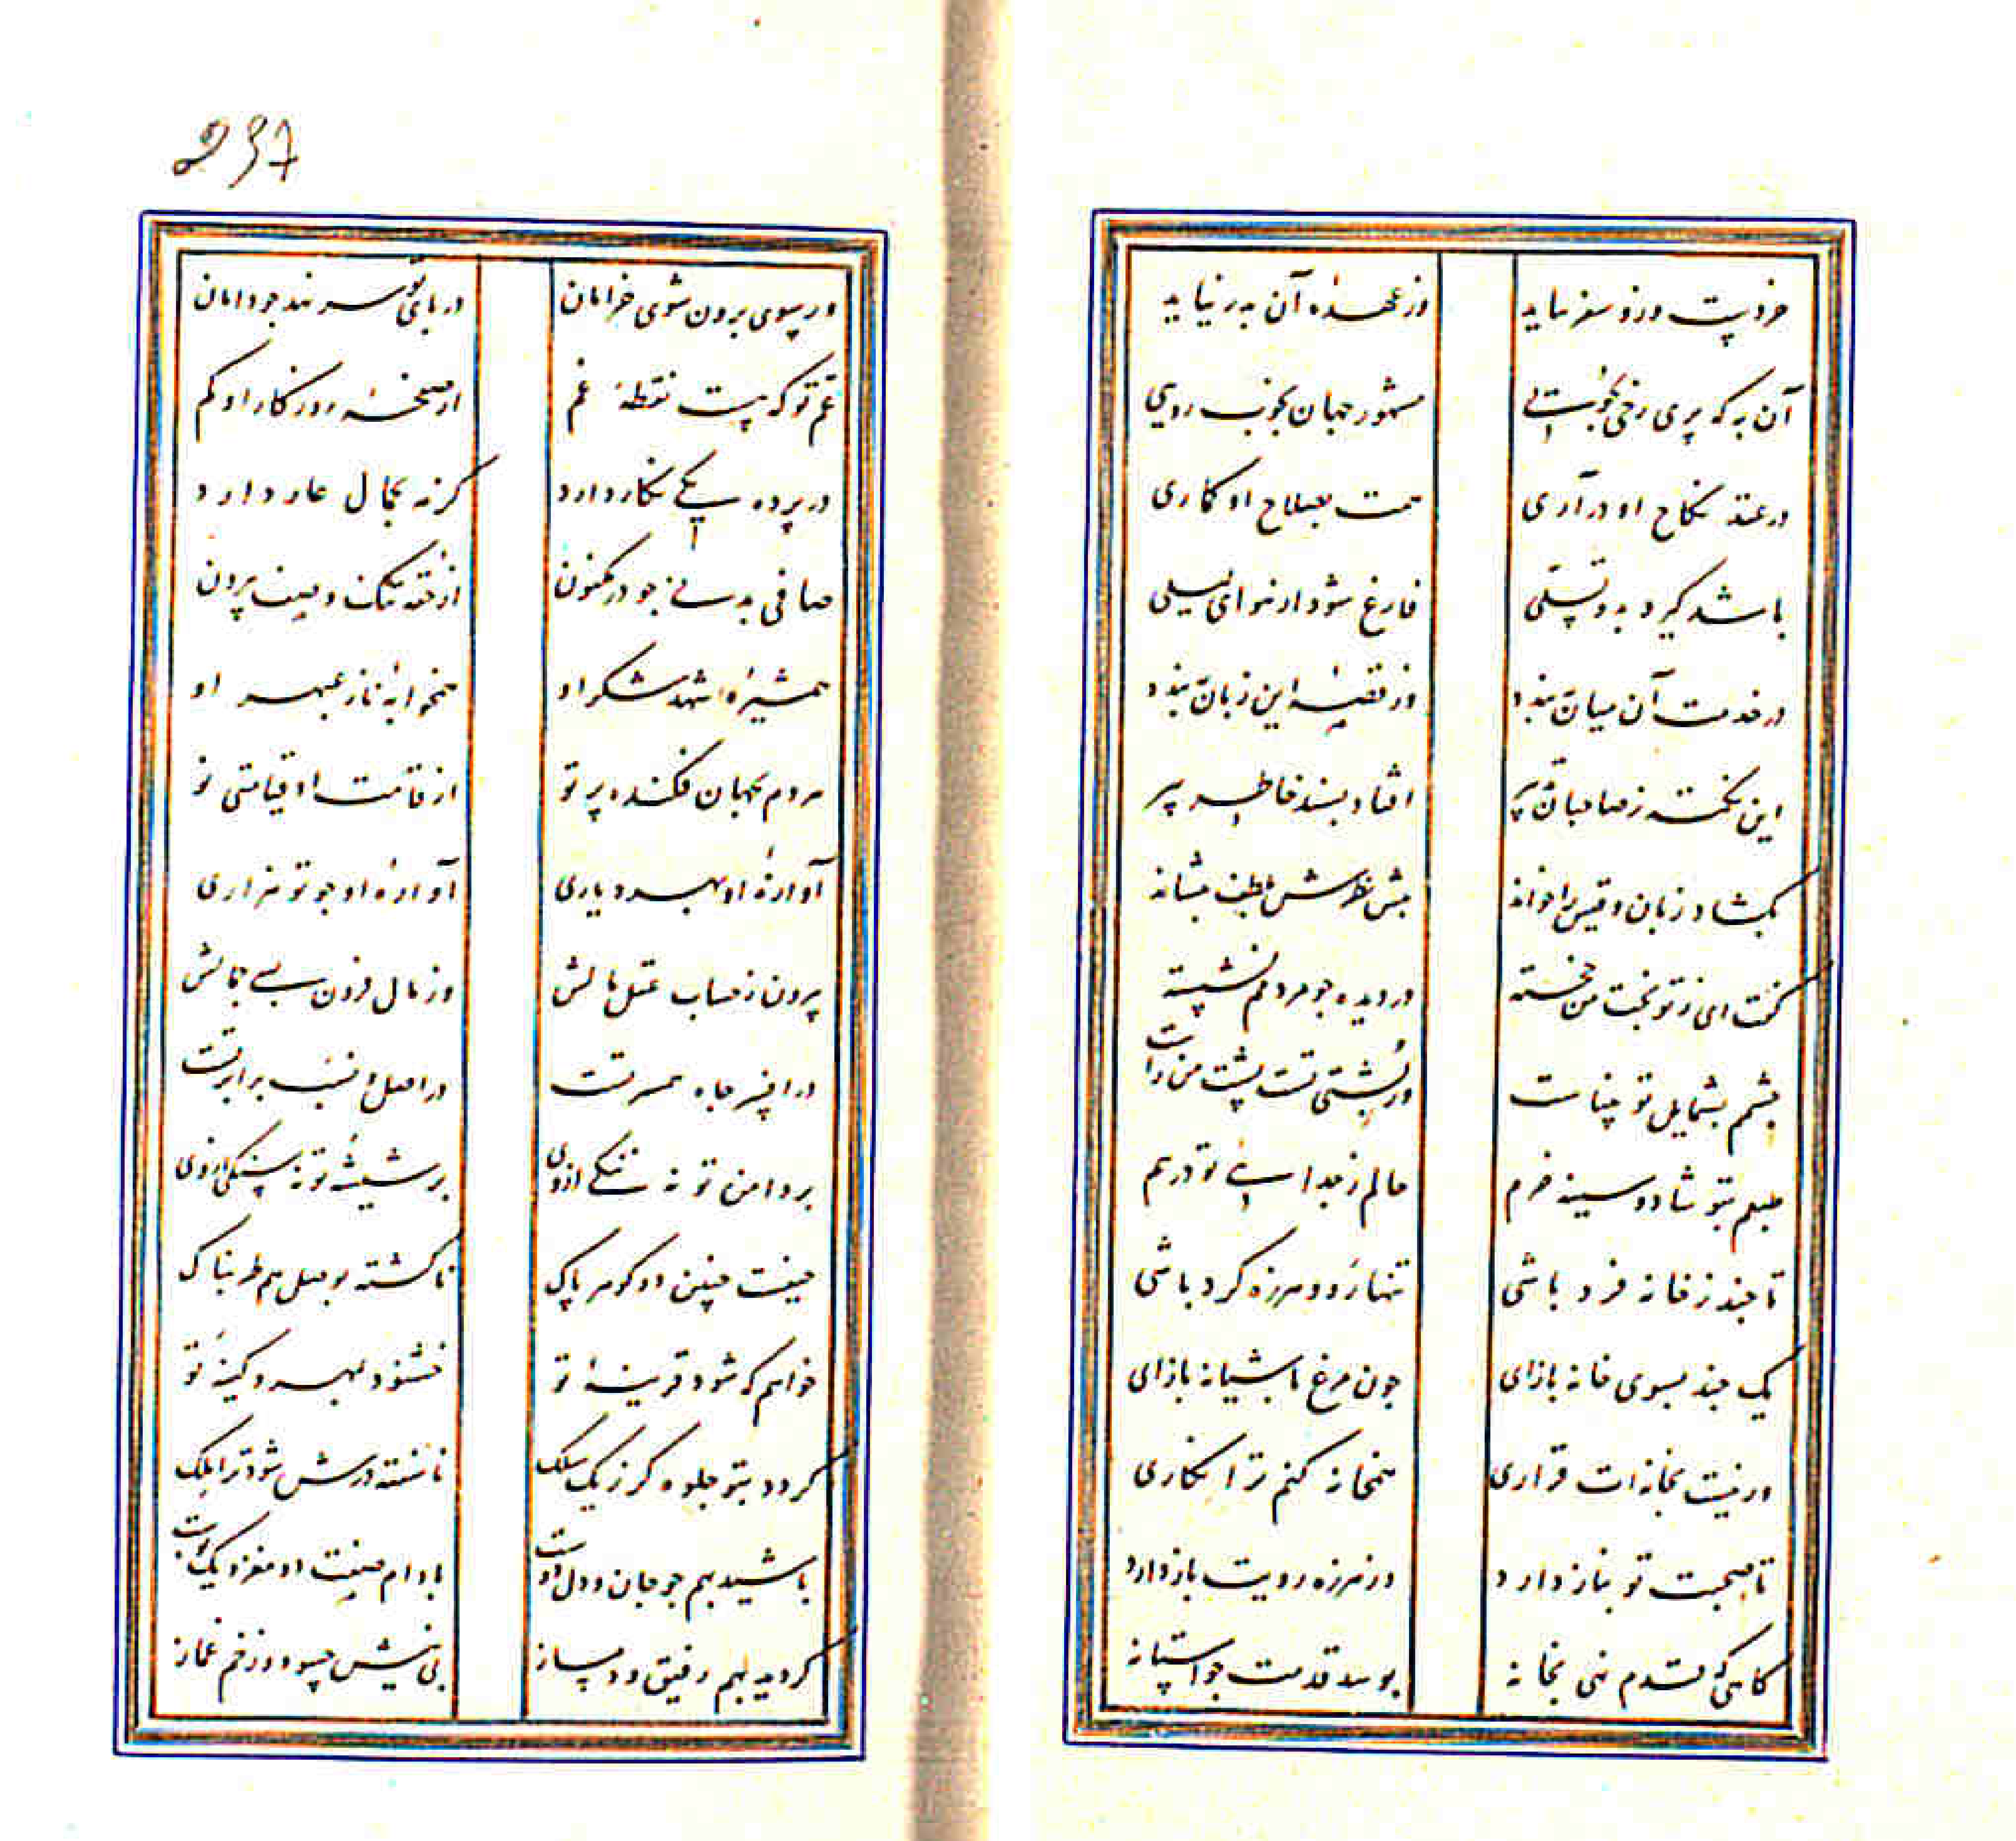 خردیست وزو سفر نیاید
وز عهدهٔ آن بدر نیاید
آن به که پری رخی بجویی
مشهور جهان بخوب رویی
در عقد نکاح او درآری
همت بصلاح او گماری
باشد گیرد بدو تسلی
فارغ شود از هوای لیلی
در خدمت آن میان ببندد
وز قصهٔ این زبان ببندد
این نکته ز صاحبان تدبیر
افتاد پسند خاطر پیر
بگشاد زبان و قیس را خواند
پیش نظرش بلطف بنشاند
گفت ای ز تو بخت من خجسته
در دیده چو مردمم نشسته
چشمم بشمایل تو بیناست
ور پشتی تست پشت من راست
طبعم بتو شاد و سینه خرم
حالم ز جدایی تو درهم
تا چند ز خانه فرد باشی
تنها رو و هرزه گرد باشی
یک چند بسوی خانه بازآی
چون مرغ بآشیانه بازآی
ور نیست بخانه‌ات قراری
همخانه کنم ترا نگاری
تا صحبت تو بناز دارد
وز هرزه رویت باز دارد
گاهی که قدم نهی بخانه
بوسد قدمت چو آستانه
ور سوی برون شوی خرامان
در پای تو سر نهد چو دامان
غم تو که هست نقطهٔ غم
از صفحهٔ روزگار او کم
در پرده یکی نگار دارد
کز مه بجمال عار دارد
صافی بدنی چو در مکنون
از حقه تنگ وصف بیرون
همشیرهٔ شهد شکر او
همخوابهٔ ناز عبهر او
هر دم بجهان فکنده پرتو
از قامت او قیامتی نو
آوازهٔ او بهر دیاری
آوارهٔ او چو تو هزاری
بیرون ز حساب عقل مالش
وز مال فزون بسی جمالش
در افسر جاه همسر تست
در اصل و نسب برابر تست
بر دامن تو نه ننگی از وی
بر شیشهٔ تو نه سنگی از وی
حیفست چنین دو گوهر پاک
ناگشته بوصل هم طربناک
خواهم که شود قرینهٔ تو
خشنود بمهر و کینهٔ تو
گردد بتو جلوه گر ز یک سلک
ناسفته درش شود ترا ملک
باشید بهم چو جان و دل دوست
بادام صفت دو مغز و یک پوست
گردید بهم رفیق و دمساز
بی نیش حسود و زخم غماز
237